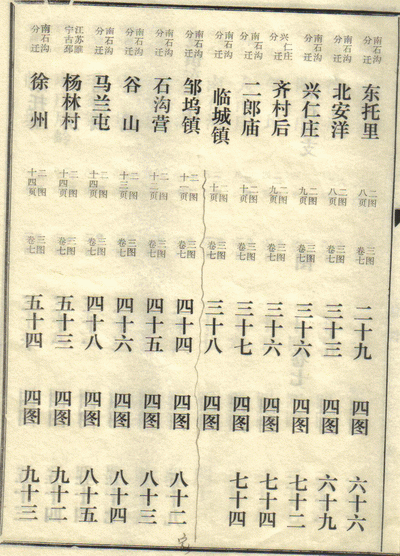 南石沟分迁 东托里 二图八页 三图卷七 二十九 四图 六十六
南石沟分迁 北安洋 二图八页 三图卷七 三十三 四图 六十九
南石沟分迁 兴仁庄 二图九页 三图卷七 三十六 四图 七十二
兴仁庄分迁 齐村后 二图九页 三图卷七 三十六 四图 七十四
南石沟分迁 二郎庙 二图十页 三图卷七 三十七 四图 七十四
南石沟分迁 临城镇 二图十页 三图卷七 三十八 四图
南石沟分迁 邹坞镇 二图十一页 三图卷七 四十四 四图 八十二
南石沟分迁 石沟营 二图十二页 三图卷七 四十五 四图 八十三
南石沟分迁 谷山 二图十三页 三图卷七 四十六 四图 八十四
南石沟分迁 马兰屯 二图十四页 三图卷七 四十八 四图 八十五
江苏睢宁古邳 杨林村 二图十四页 三图卷七 五十三 四图 九十二
南石沟分迁 徐州 二图十四页 三图卷七 五十四 四图 九十三